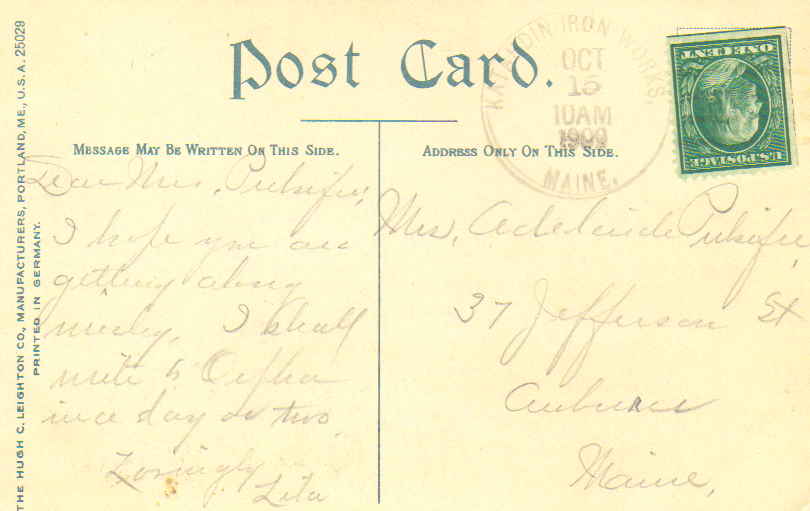 Post Card.
KATAHDIN IRON WORKS,
OCT
15
10AM
1909
MAINE.
U.S. POSTAGE
ONE CENT
MESSAGE MAY BE WRITTEN ON THIS SIDE.
ADDRESS ONLY ON THIS SIDE.
Dear Mrs. Pulsifer,
I hope you are
getting along
nicely. I shall
write to Orpha
in a day or two.
Lovingly
Lita
Mrs. Adelaide Pulsifer,
37 Jefferson St
Auburn
Maine,
THE HUGH C. LEIGHTON CO., MANUFACTURERS, PORTLAND, ME., U.S.A. 25029
PRINTED IN GERMANY.